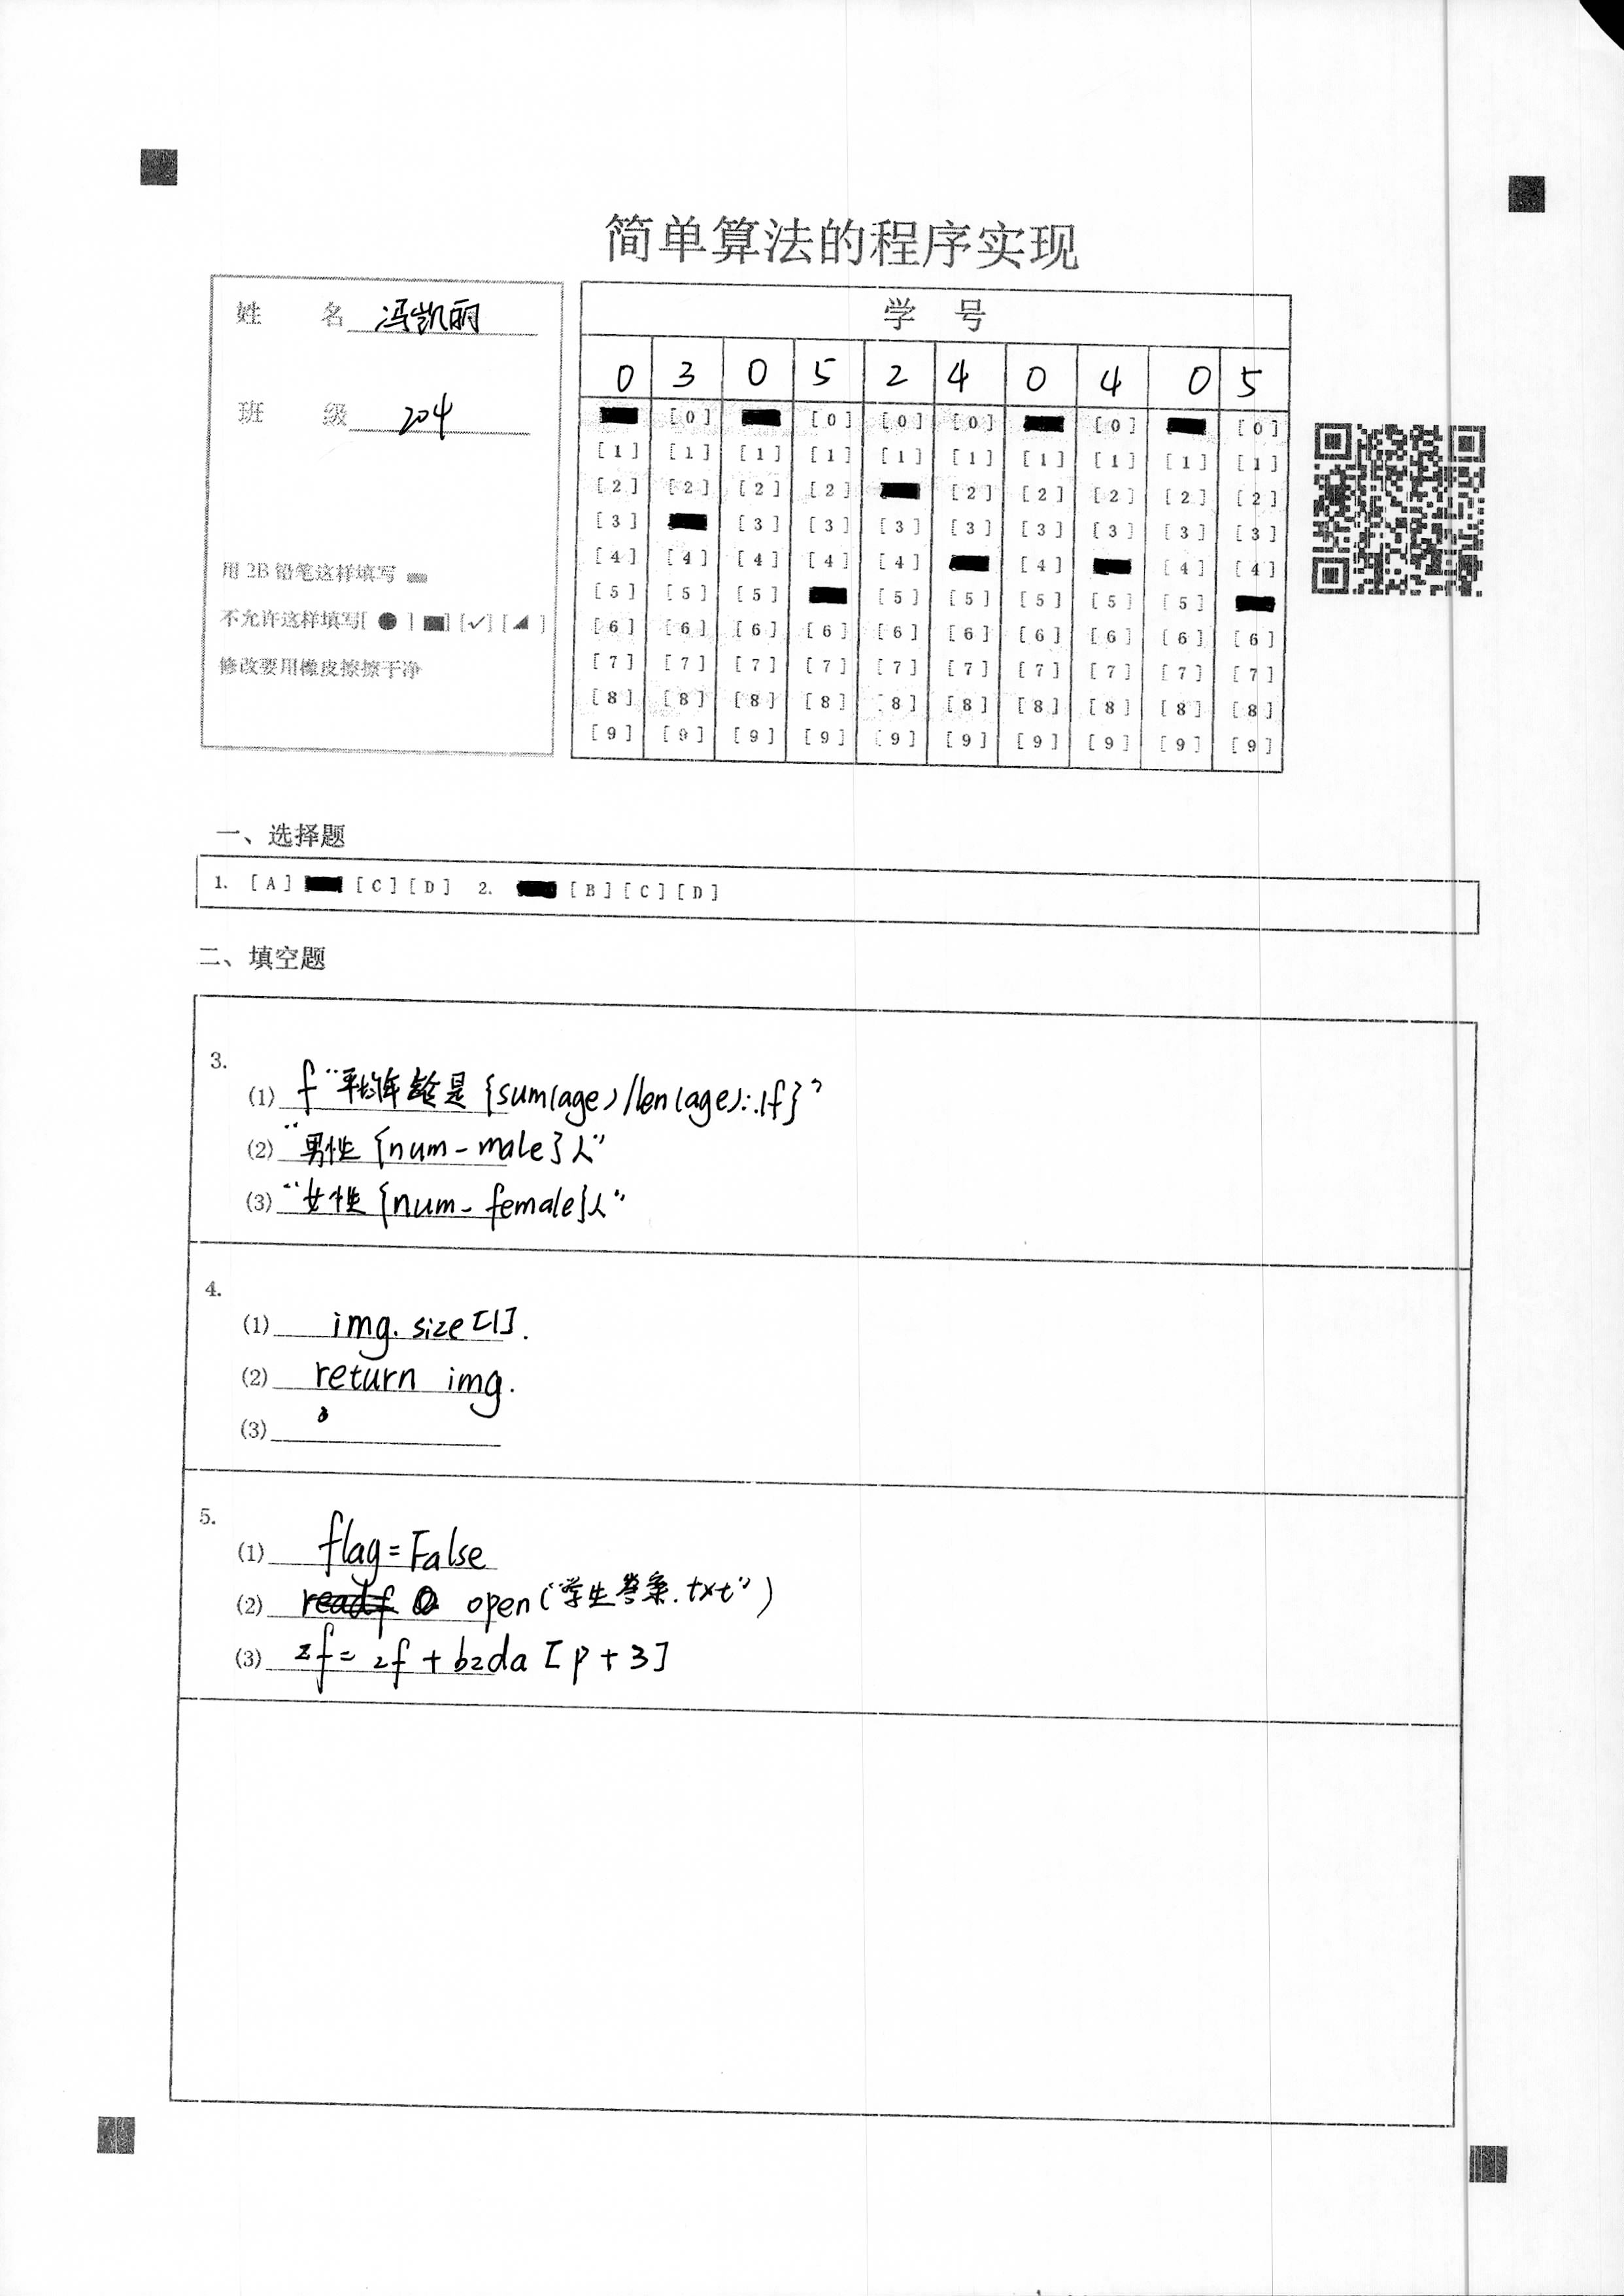 简单算法的程序实现
姓 名 冯凯丽
班 级 204
用 2B 铅笔这样填写
不允许这样填写[ ● ] [■] [✓] [◢ ]
修改要用橡皮擦擦干净
学 号
0 3 0 5 2 4 0 4 0 5
[0] [0] [0] [0] [0] [0]
[1] [1] [1] [1] [1] [1] [1] [1] [1] [1]
[2] [2] [2] [2] [2] [2] [2] [2] [2]
[3] [3] [3] [3] [3] [3] [3] [3] [3]
[4] [4] [4] [4] [4] [4] [4] [4]
[5] [5] [5] [5] [5] [5] [5] [5]
[6] [6] [6] [6] [6] [6] [6] [6] [6] [6]
[7] [7] [7] [7] [7] [7] [7] [7] [7] [7]
[8] [8] [8] [8] [8] [8] [8] [8] [8] [8]
[9] [9] [9] [9] [9] [9] [9] [9] [9] [9]
一、选择题
1. [A] [C] [D] 2. [B] [C] [D]
二、填空题
3.
(1) f"平均年龄是{sum(age)/len(age):.1f}"
(2) "男性{num_male}人"
(3) "女性{num_female}人"
4.
(1) img.size[1].
(2) return img.
(3)
5.
(1) flag=False
(2) open("学生答案.txt")
(3) zf=zf+bzda[p+3]